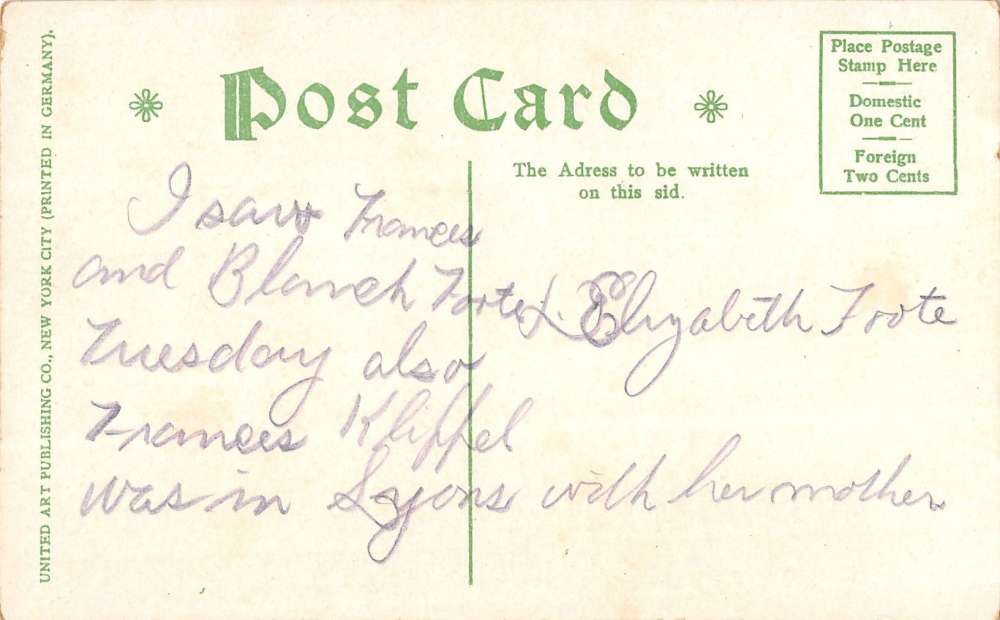 UNITED ART PUBLISHING CO., NEW YORK CITY (PRINTED IN GERMANY).
Post Card
Place Postage
Stamp Here
Domestic
One Cent
Foreign
Two Cents
The Adress to be written
on this sid.
I saw Frances
and Blanch Foote & Elizabeth Foote
Tuesday also
Frances Klippel
was in Lyons with her mother